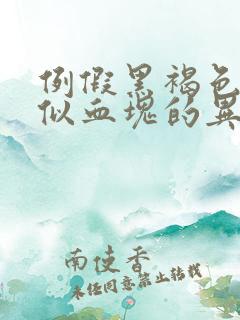 例假黑褐色
似血块的异
南使香
未经同意禁止转载